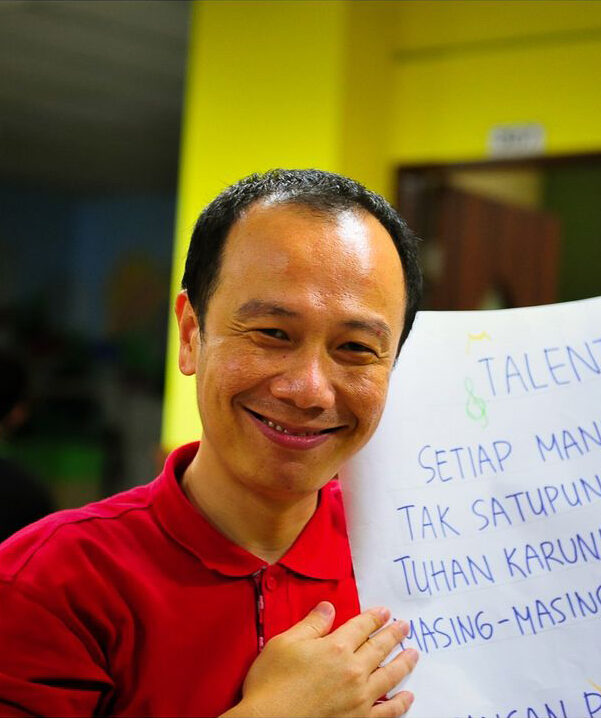 TALENT
SETIAP MAN
TAK SATUPUN
TUHAN KARUNI
MASING-MASING